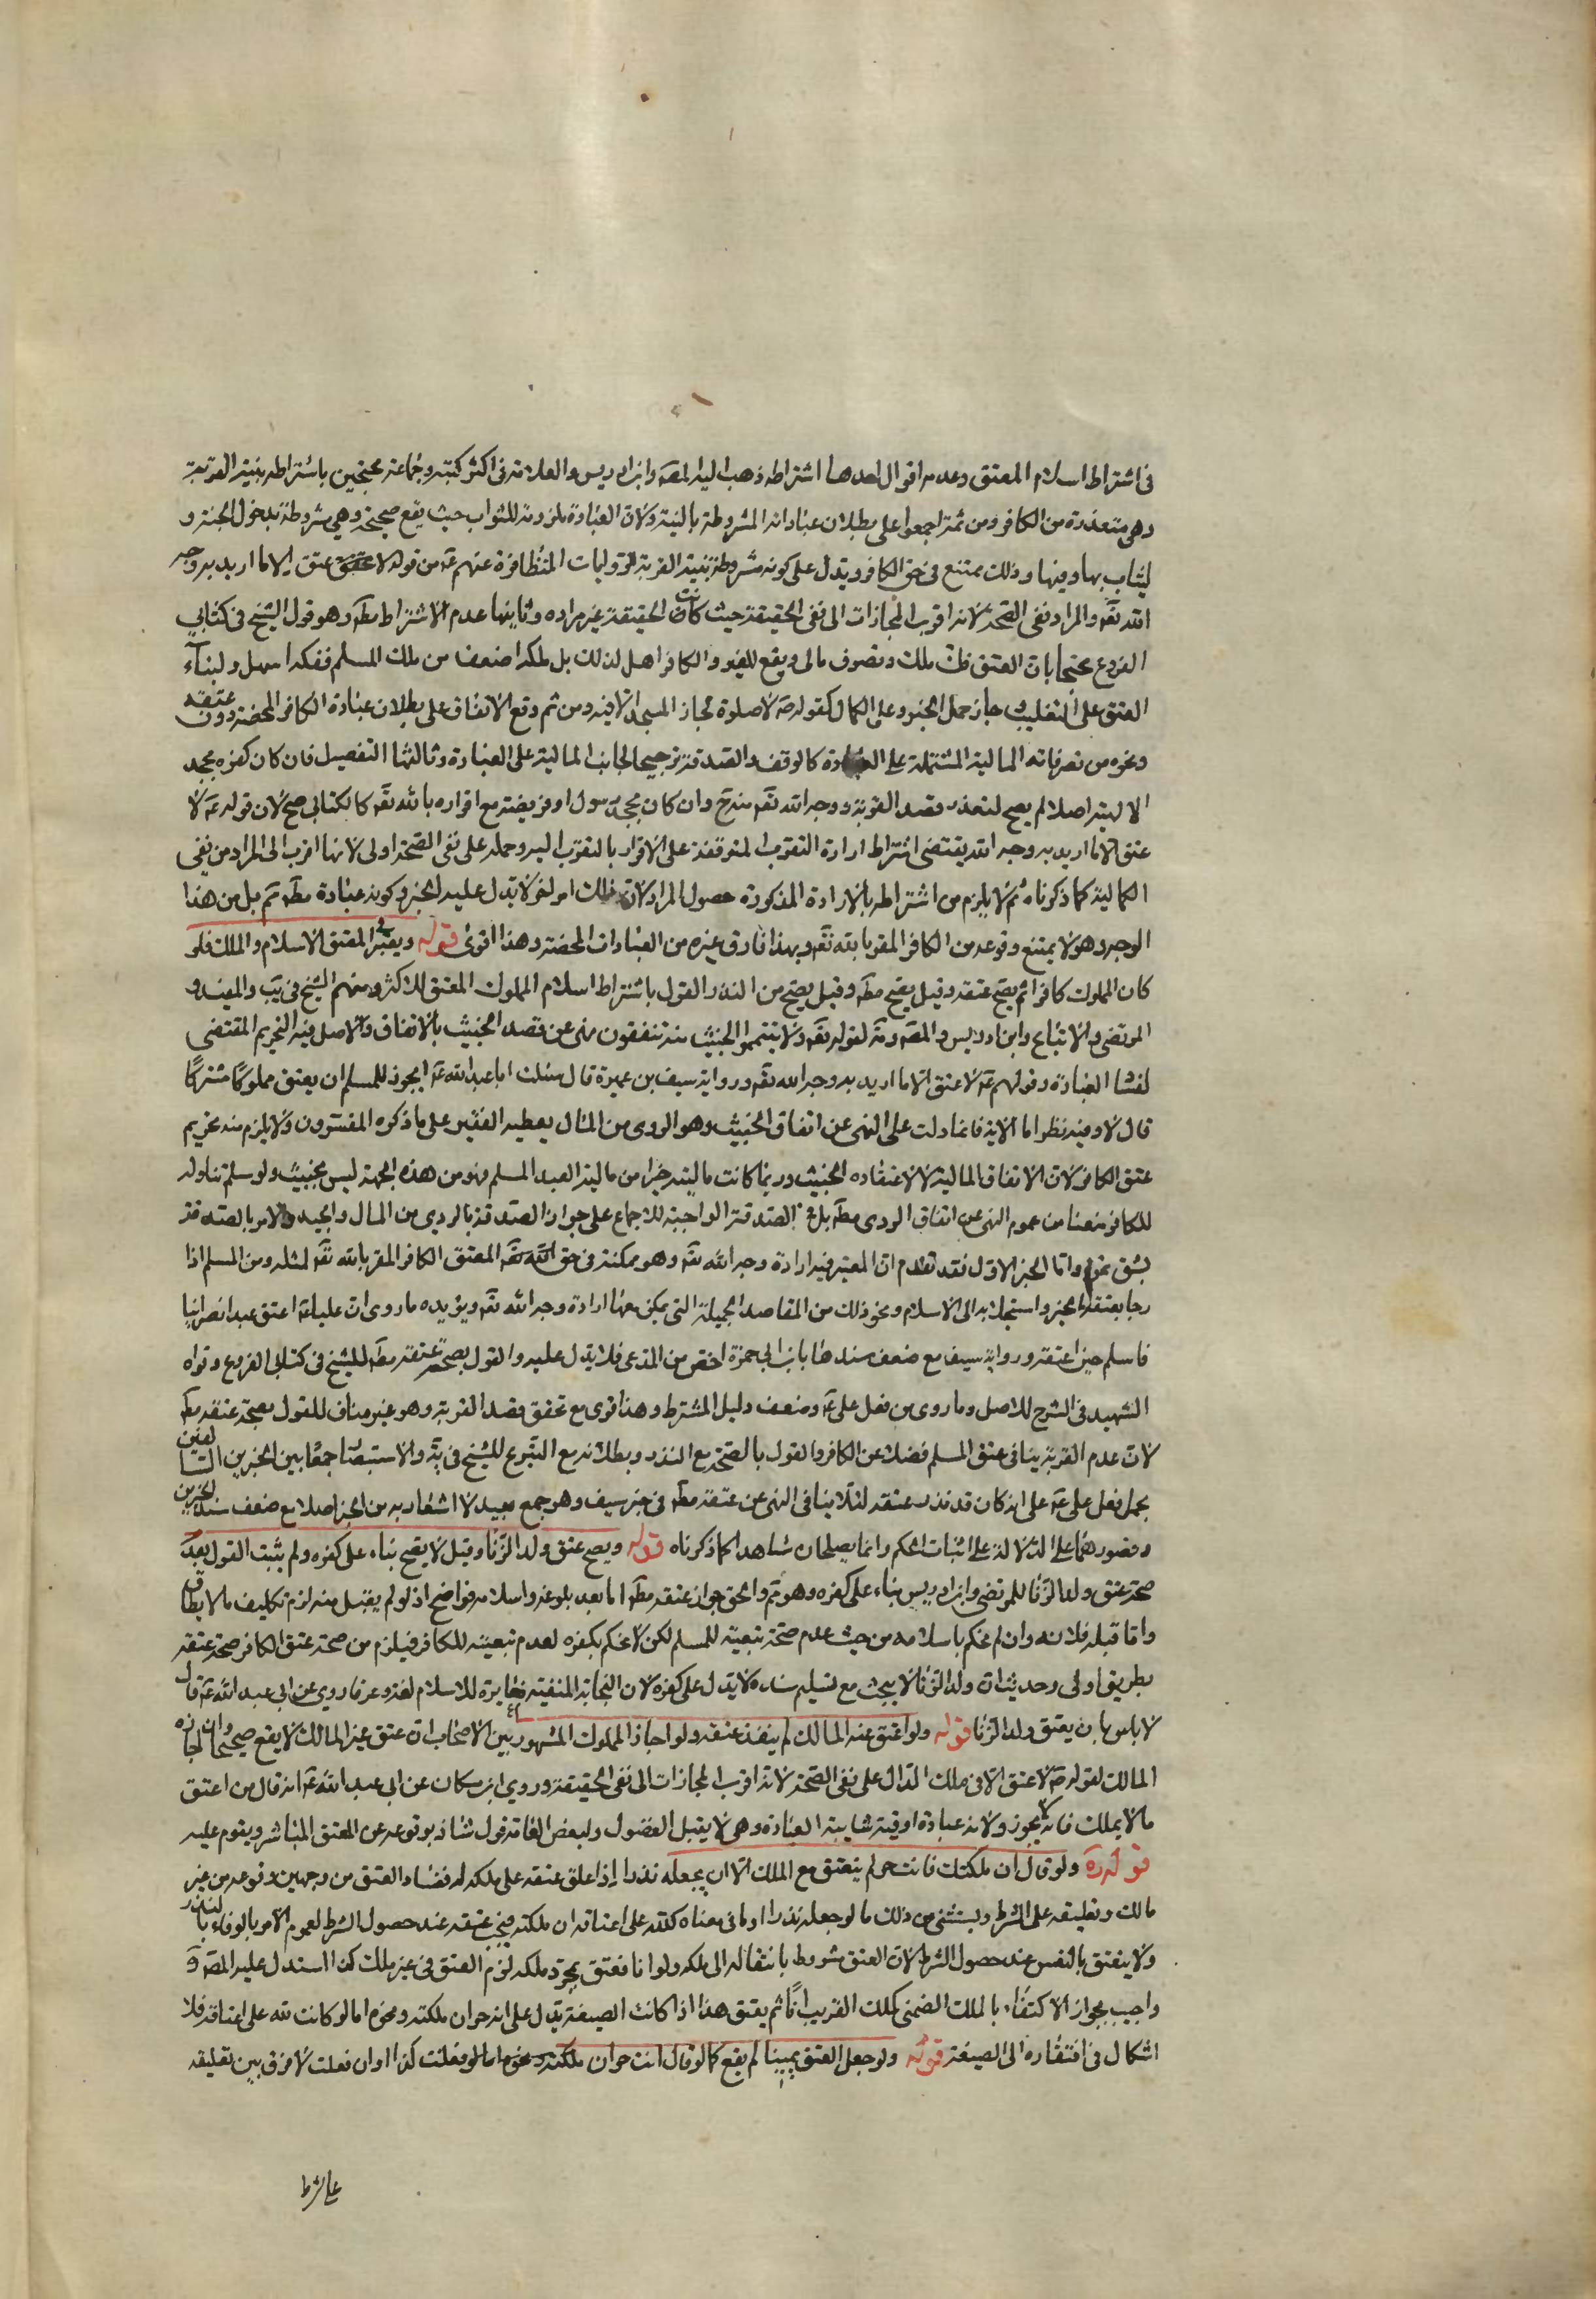 في اشتراط اسلام المعتق وعدمه اقوال احدها اشتراطه ذهب اليه المصه وابن ادريس والعلامة في اكثر كتبه وجماعة محتجين باشتراطه بنية القربة
وهي متعذرة من الكافر ومن ثمة اجمعوا على بطلان عباداته المشروطة بالنية ولان العبادة ملزومة للثواب حيث يقع صحيحة وهي مشروطة بدخول الجنة و
ليثاب بها وفيها وذلك ممتنع في حق الكافر ويدل على كونه مشروطة بنية القربة الروايات المتظافرة عنهم عه من قوله لا عتق الا ما اريد به وجه
الله تعه والمراد نفي الصحة لانه اقرب المجازات الى نفي الحقيقة حيث كانت الحقيقة غير مرادة وثانيها عدم الاشتراط مطه وهو قول الشيخ في كتابي
الفروع محتجا بان العتق فك ملك وتصرف مالي ويقع للغير والكافر اهل لذلك بل ملكه اضعف من ملك المسلم ففكه اسهل ولبناء
العتق على التغليب جاز حمل الخبر على الكمال كقوله صه لا صلوة لجار المسجد الا فيه ومن ثم وقع الاتفاق على بطلان عبادة الكافر المحضة دون عتقه
ونحوه من تصرفاته المالية المشتملة على العبادة كالوقف والصدقة ترجيحا لجانب المالية على العبادة وثالثها التفصيل فان كان كفره بجحد
الالهية اصلا لم يصح لتعذر قصد القربة ووجه الله تعه منه ح وان كان بجحد رسول او فريضة مع اقراره بالله تعه كالكتابي صح لان قوله عه لا
عتق الا ما اريد به وجه الله يقتضي اشتراط ارادة التقرب المتوقفة على الاقرار بالمتقرب اليه وحمله على نفي الصحة اولى لانها اقرب الى المراد من نفي
الكمالية كما ذكرناه ثم لا يلزم من اشتراطه بالارادة المذكورة حصول المراد لان ذلك امر اخر لا يدل عليه الخبر وكونه عبادة مطه ثم بل من هذا
الوجه وهو لا يمتنع وقوعه من الكافر المقر بالله تعه وبهذا فارق غيره من العبادات المحضة وهذا اقوى قوله ويعتبر في المعتق الاسلام والملك فلو
كان المملوك كافرا لم يصح عتقه وقيل يصح مطه وقيل يصح من النذر القول باشتراط اسلام المملوك المعتق للاكثر ومنهم الشيخ في يب والمفيد و
المرتضى والاتباع وابن ادريس والمصه وته لقوله تعه ولا تيمموا الخبيث منه تنفقون نهى عن قصد الخبيث بالانفاق والاصل فيه التحريم المقتضي
لفساد العبادة وقولهم عه لا عتق الا ما اريد به وجه الله تعه ورواية سيف بن عميرة قال سئلت ابا عبد الله عه ايجوز للمسلم ان يعتق مملوكا مشركا
قال لا وفيه نظر اما الاية فانما دلت على النهي عن انفاق الخبيث وهو الردي من المال يعطيه الفقير على ما ذكره المفسرون ولا يلزم منه تحريم
عتق الكافر لان الانفاق المالية لا لاعتقاده الخبيث وربما كانت ماليته خيرا من مالية العبد المسلم فهو من هذه الجهة ليس بخبيث ولو سلم تناوله
للكافر منعنا من عموم النهي عن انفاق الردي مطه بل في الصدقة الواجبة للاجماع على جواز الصدقة بالردي من المال والجيد والامر بالصدقة
بشق تمرة واما الخبر الاول فقد تقدم ان المعتبر فيه ارادة وجه الله تعه وهو ممكنة في حق المعتق الكافر المقر بالله تعه لمثله ومن المسلم اذا
رجا بعتقه الخير واستجلابه الى الاسلام ونحو ذلك من المقاصد الجميلة التي يمكن معها ارادة وجه الله تعه ويؤيده ما روي ان عليا عه اعتق عبدا نصرانيا
فاسلم حين اعتقه ورواية سيف مع ضعف سندها بابن ابي حمزة اخص من المدعى فلا يدل عليه والقول بصحة عتقه مطه للشيخ في كتابي الفروع وقواه
الشهيد في الشرح للاصل وما روي من فعل علي عه وضعف دليل المشترط وهذا قوي مع تحقق قصد القربة وهو غير مناف للقول بصحة عتقه مطه
لان عدم القربة ينافي عتق المسلم فضلا عن الكافر والقول بالصحة مع النذر وبطلانه مع التبرع للشيخ في ية والاستبصار جمعا بين الخبرين السابقين
بحمل فعل علي عه على انه كان قد نذر عتقه لئلا ينافي النهي عن عتقه مطه في خبر سيف وهو جمع بعيد لا اشعار به من الخبر اصلا مع ضعف سند الخبرين
وقصورهما على الدلالة على اثبات الحكم وانما يصلحان شاهدا لما ذكرناه قوله ويصح عتق ولد الزنا وقيل لا يصح بناء على كفره ولم يثبت القول بعدم
صحة عتق ولد الزنا للمرتضى وابن ادريس بناء على كفره وهو ثم والحق جواز عتقه مطه اما بعد بلوغه واسلامه فواضح اذ لو لم يقبل منه لزم تكليف ما لا يطاق
واما قبله فلانه وان لم نحكم باسلامه من حيث عدم صحة تبعيته للمسلم لكن لا نحكم بكفره لعدم تبعيته للكافر فيلزم من صحة عتق الكافر صحة عتقه
بطريق اولى وحديث ان ولد الزنا لا ينجب مع تسليم سنده لا يدل على كفره لان النجابة المنفية مغايرة للاسلام لغة وعرفا روي عن ابي عبد الله عه قال
لا باس بان يعتق ولد الزنا قوله ولو اعتق غير المالك لم ينفذ عتقه ولو اجاز المملوك المشهور بين الاصحاب ان عتق غير المالك لا يقع صحيحا وان اجازه
المالك لقوله صه لا عتق الا في ملك الدال على نفي الصحة لانه اقرب المجازات الى نفي الحقيقة وروي ابن مسكان عن ابي عبد الله عه انه قال من اعتق
ما لا يملك فانه لا يجوز ولانه عبادة او فيه شايبة العبادة وهي لا يقبل الفضول ولبعض العامة قول شاذ بوقوعه عن المعتق المباشر ويقوم عليه
قوله ره ولو قال ان ملكتك فانت حر لم ينعتق مع الملك الا ان يجعله نذرا اذا علق عتقه على ملكه له ففساد العتق من وجهين وقوعه من غير
مالك وتعليقه على الشرط ويستثنى من ذلك ما لو جعله نذرا او ما في معناه كلله على اعتاقه ان ملكته فيجب عتقه عند حصول الشرط لعموم الامر بالوفاء بالنذر
ولا ينعتق بالنفس عند حصول الشرط لان العتق مشروط بانتقاله الى ملكه ولو انا فعتق بمجرد ملكه لزم العتق في غير ملك كذا استدل عليه المصه و
واجيب بجواز الاكتفاء بالملك الضمني كملك القريب انا ثم يعتق هذا اذا كانت الصيغة يدل على انه حر ان ملكته ونحوه اما لو كانت لله على اعتاقه فلا
اشكال في افتقاره الى الصيغة قوله ولو جعل العتق يمينا لم يقع كما لو قال انت حر ان ملكتك ونحوه اما لو فعلت كذا او ان فعلت لا فرق بين تعليقه
على شرط